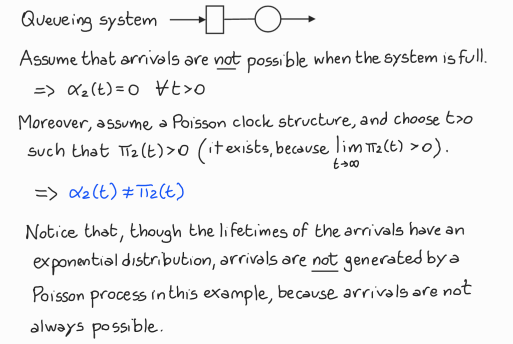 Queueing system
Assume that arrivals are not possible when the system is full.
=> α₂(t)=0 ∀t>0
Moreover, assume a Poisson clock structure, and choose t>0
such that π₂(t)>0 (it exists, because lim π₂(t)>0).
t→∞
=> α₂(t)≠π₂(t)
Notice that, though the lifetimes of the arrivals have an
exponential distribution, arrivals are not generated by a
Poisson process in this example, because arrivals are not
always possible.